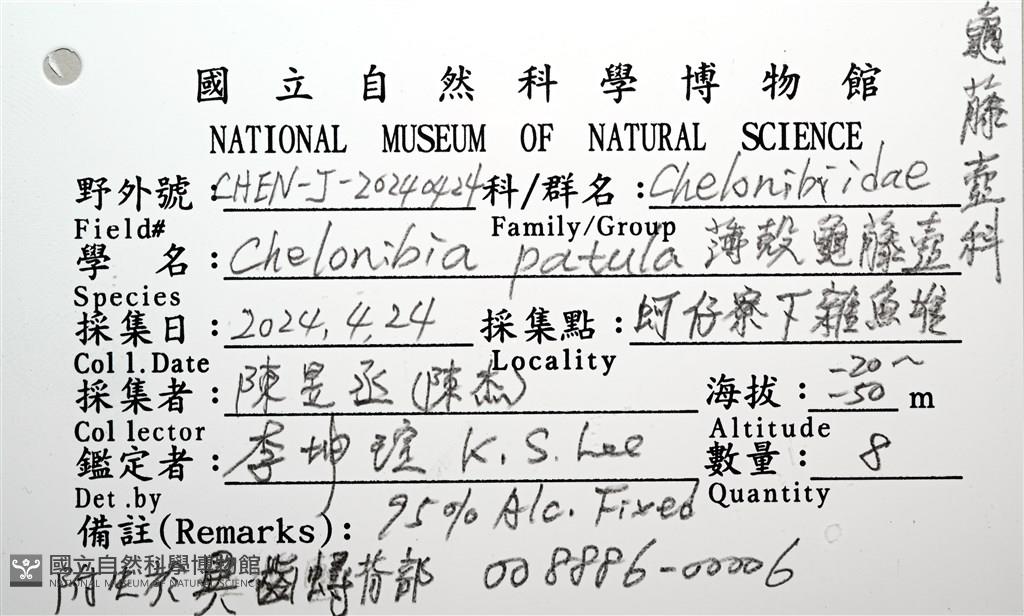 國立自然科學博物館
NATIONAL MUSEUM OF NATURAL SCIENCE
野外號：CHEN-J-20240424 科/群名：Chelonibiidae
Field# Family/Group
龜藤壺科
學 名：Chelonibia patula 薄殼龜藤壺
Species
採集日：2024.4.24 採集點：蚵仔寮下雜魚堆
Coll.Date Locality
採集者：陳昱丞(陳杰) 海拔：-20～-50 m
Collector Altitude
鑑定者：李坤瑄 K.S.Lee 數量：8
Det.by Quantity
備註(Remarks)：95% Alc. Fixed
附生於異齒蟳背部 008886-00006
國立自然科學博物館
NATIONAL MUSEUM OF NATURAL SCIENCE